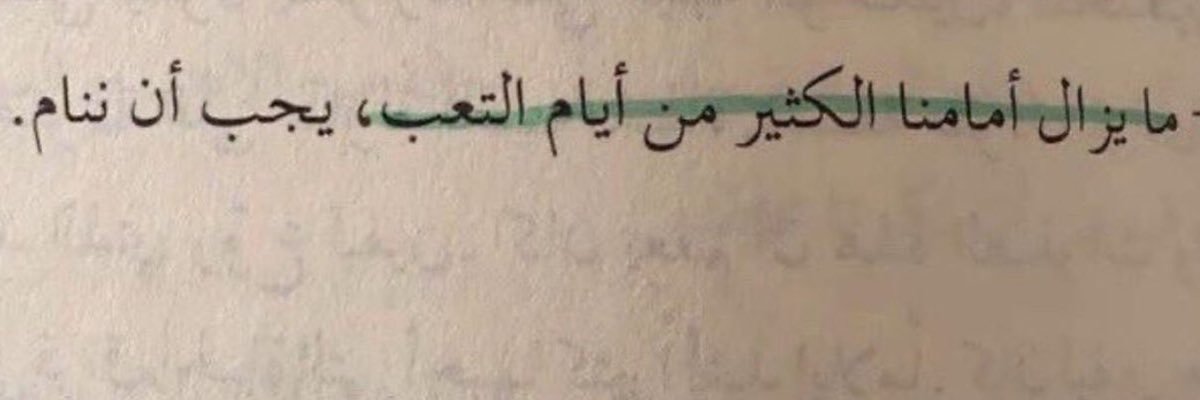 - ما يزال أمامنا الكثير من أيام التعب، يجب أن ننام.